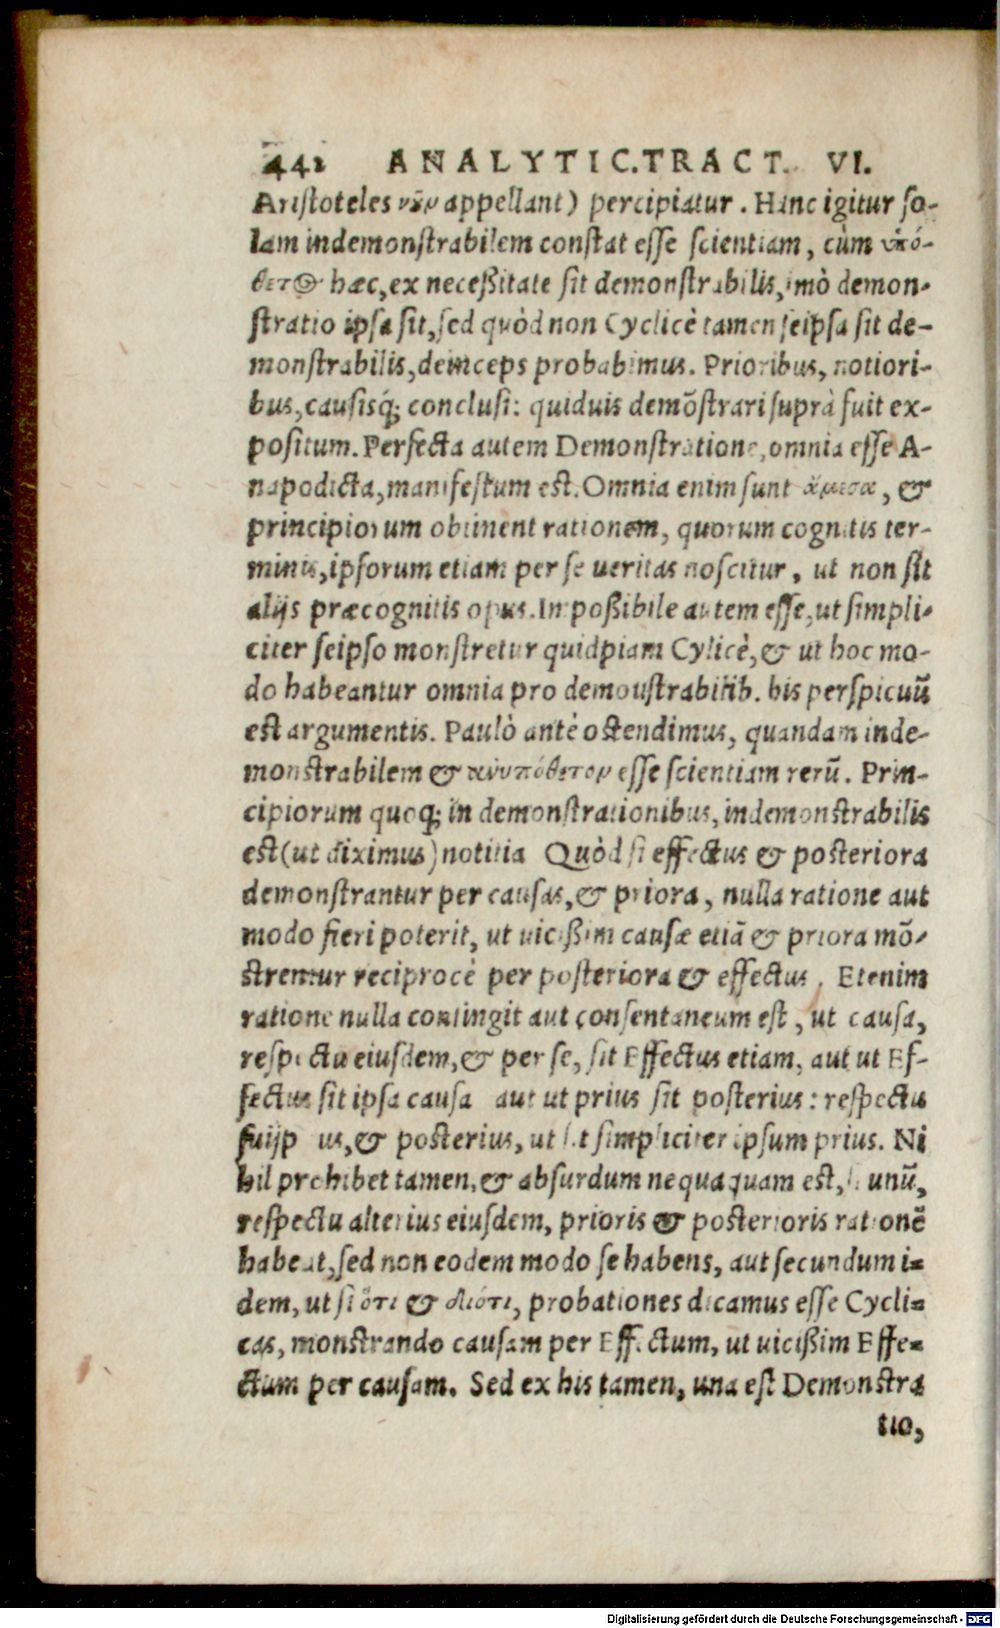 442 ANALYTIC.TRACT. VI.
Aristoteles νȣ̃ν appellant) percipiatur. Hanc igitur so-
lam indemonstrabilem constat esse scientiam, cùm ὑπό-
θετ҃ος hæc, ex neceßitate sit demonstrabilis, imò demon-
stratio ipsa sit, sed quòd non Cyclicè tamen seipsa sit de-
monstrabilis, deinceps probabimus. Prioribus, notiori-
bus, causisq́; conclusi: quiduis demõstrari suprà fuit ex-
positum. Perfecta autem Demonstratione, omnia esse A-
napodicta, manifestum est. Omnia enim sunt ἄμεσα, &
principiorum obtinent rationem, quorum cognitis ter-
minis, ipsorum etiam per se ueritas noscitur, ut non sit
alijs præcognitis opus. Impoßibile autem esse, ut simpli-
citer seipso monstretur quidpiam Cylicè, & ut hoc mo-
do habeantur omnia pro demoustrabilib. his perspicuũ
est argumentis. Paulò antè ostendimus, quandam inde-
monstrabilem & ἀνυπόθετον esse scientiam rerũ. Prin-
cipiorum quoq; in demonstrationibus, indemonstrabilis
est (ut diximus) notitia Quòd si effectus & posteriora
demonstrantur per causas, & priora, nulla ratione aut
modo fieri poterit, ut uicißim causæ etiã & priora mõ-
strentur reciprocè per posteriora & effectus. Etenim
ratione nulla contingit aut consentaneum est, ut causa,
respectu eiusdem, & per se, sit Effectus etiam, aut ut Ef-
fectus sit ipsa causa aut ut prius sit posterius: respectu
suijp us, & posterius, ut sit simpliciter ipsum prius. Ni
hil prohibet tamen, & absurdum nequaquam est, si unũ,
respectu alterius eiusdem, prioris & posterioris rationẽ
habeat, sed non eodem modo se habens, aut secundum i-
dem, ut si ὅτι & διότι, probationes dicamus esse Cycli-
cas, monstrando causam per Effectum, ut uicißim Effe-
ctum per causam. Sed ex his tamen, una est Demonstra
tio,
Digitalisierung gefördert durch die Deutsche Forschungsgemeinschaft - DFG